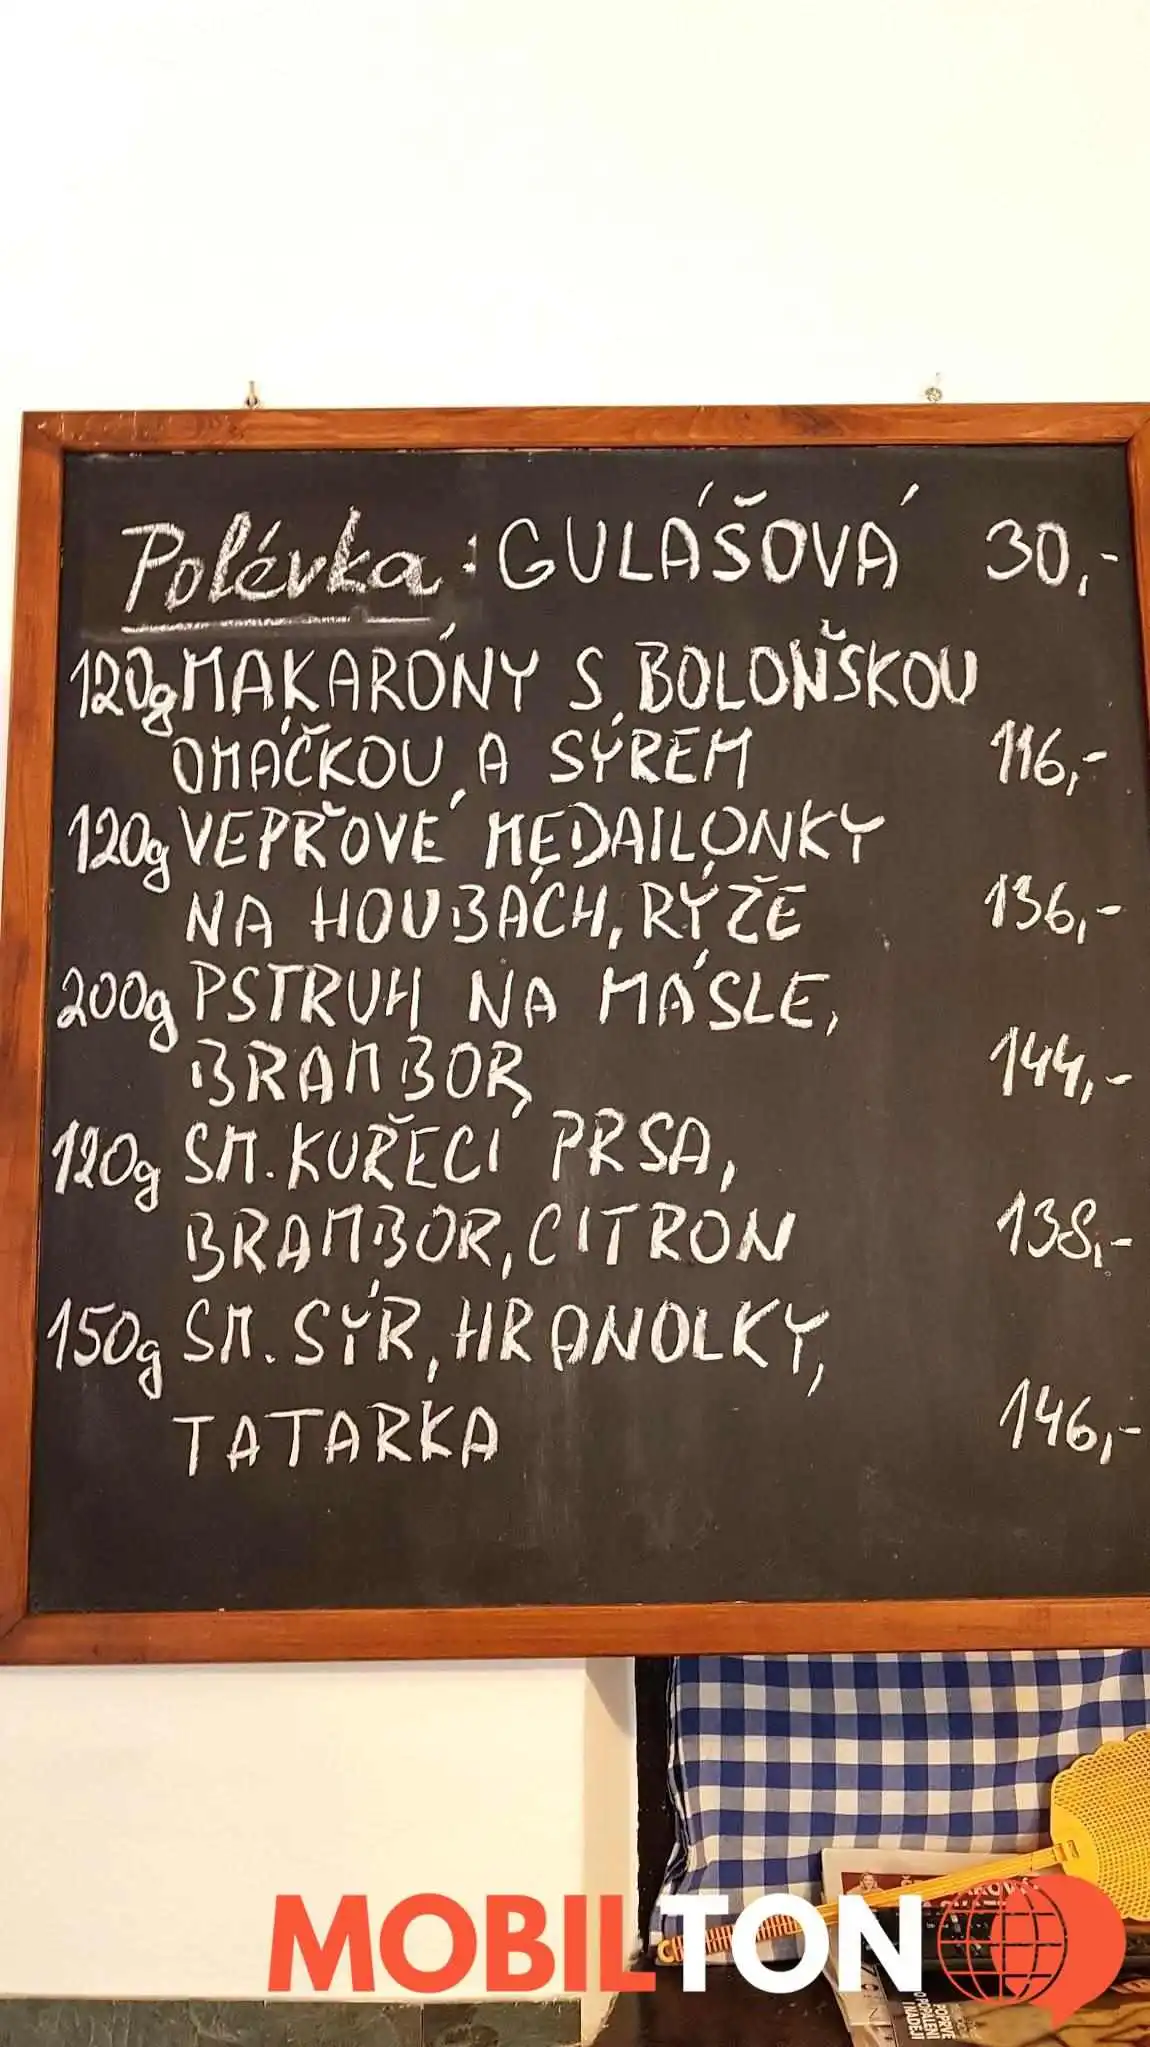 Polévka: GULÁŠOVÁ 30,-
120g MAKARÓNY S BOLOŇSKOU
OMÁČKOU A SÝREM 116,-
120g VEPŘOVÉ MEDAILONKY
NA HOUBÁCH, RÝŽE 136,-
200g PSTRUH NA MÁSLE,
BRAMBOR 144,-
120g SM. KUŘECÍ PRSA,
BRAMBOR, CITRON 138,-
150g SM. SÝR, HRANOLKY,
TATARKA 146,-
MOBILTON